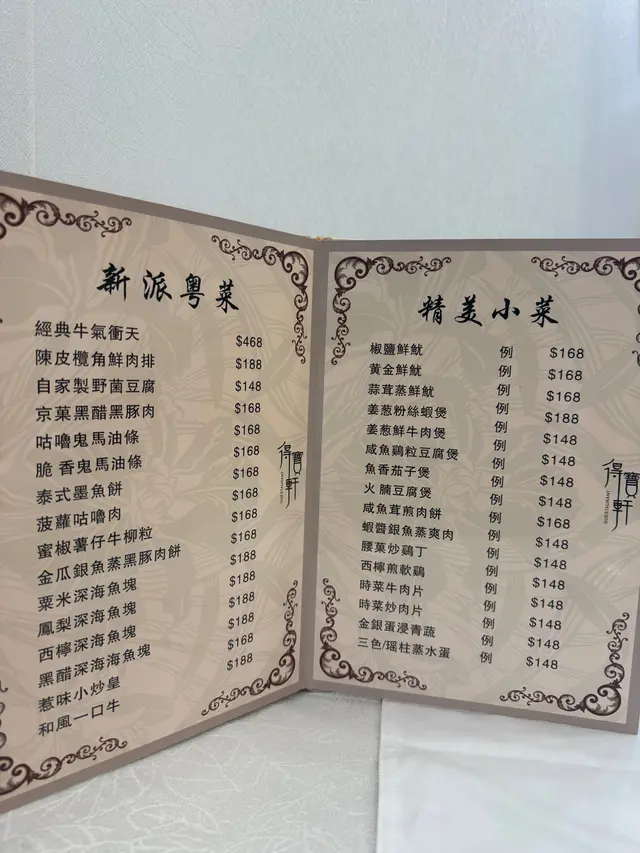 新派粵菜
經典牛氣衝天 $468
陳皮欖角鮮肉排 $188
自家製野菌豆腐 $148
京菓黑醋黑豚肉 $168
咕嚕鬼馬油條 $168
脆香鬼馬油條 $168
泰式墨魚餅 $168
菠蘿咕嚕肉 $168
蜜椒薯仔牛柳粒 $168
金瓜銀魚蒸黑豚肉餅 $168
粟米深海魚塊 $188
鳳梨深海魚塊 $188
西檸深海魚塊 $188
黑醋深海海魚塊 $188
惹味小炒皇 $168
和風一口牛 $188
得寶軒
精美小菜
椒鹽鮮魷 例 $168
黃金鮮魷 例 $168
蒜茸蒸鮮魷 例 $168
姜葱粉絲蝦煲 例 $188
姜葱鮮牛肉煲 例 $148
咸魚鷄粒豆腐煲 例 $148
魚香茄子煲 例 $148
火腩豆腐煲 例 $148
咸魚茸煎肉餅 例 $168
蝦醬銀魚蒸爽肉 例 $148
腰菓炒鷄丁 例 $148
西檸煎軟鷄 例 $148
時菜牛肉片 例 $148
時菜炒肉片 例 $148
金銀蛋浸青蔬 例 $148
三色/瑶柱蒸水蛋 例 $148
得寶軒